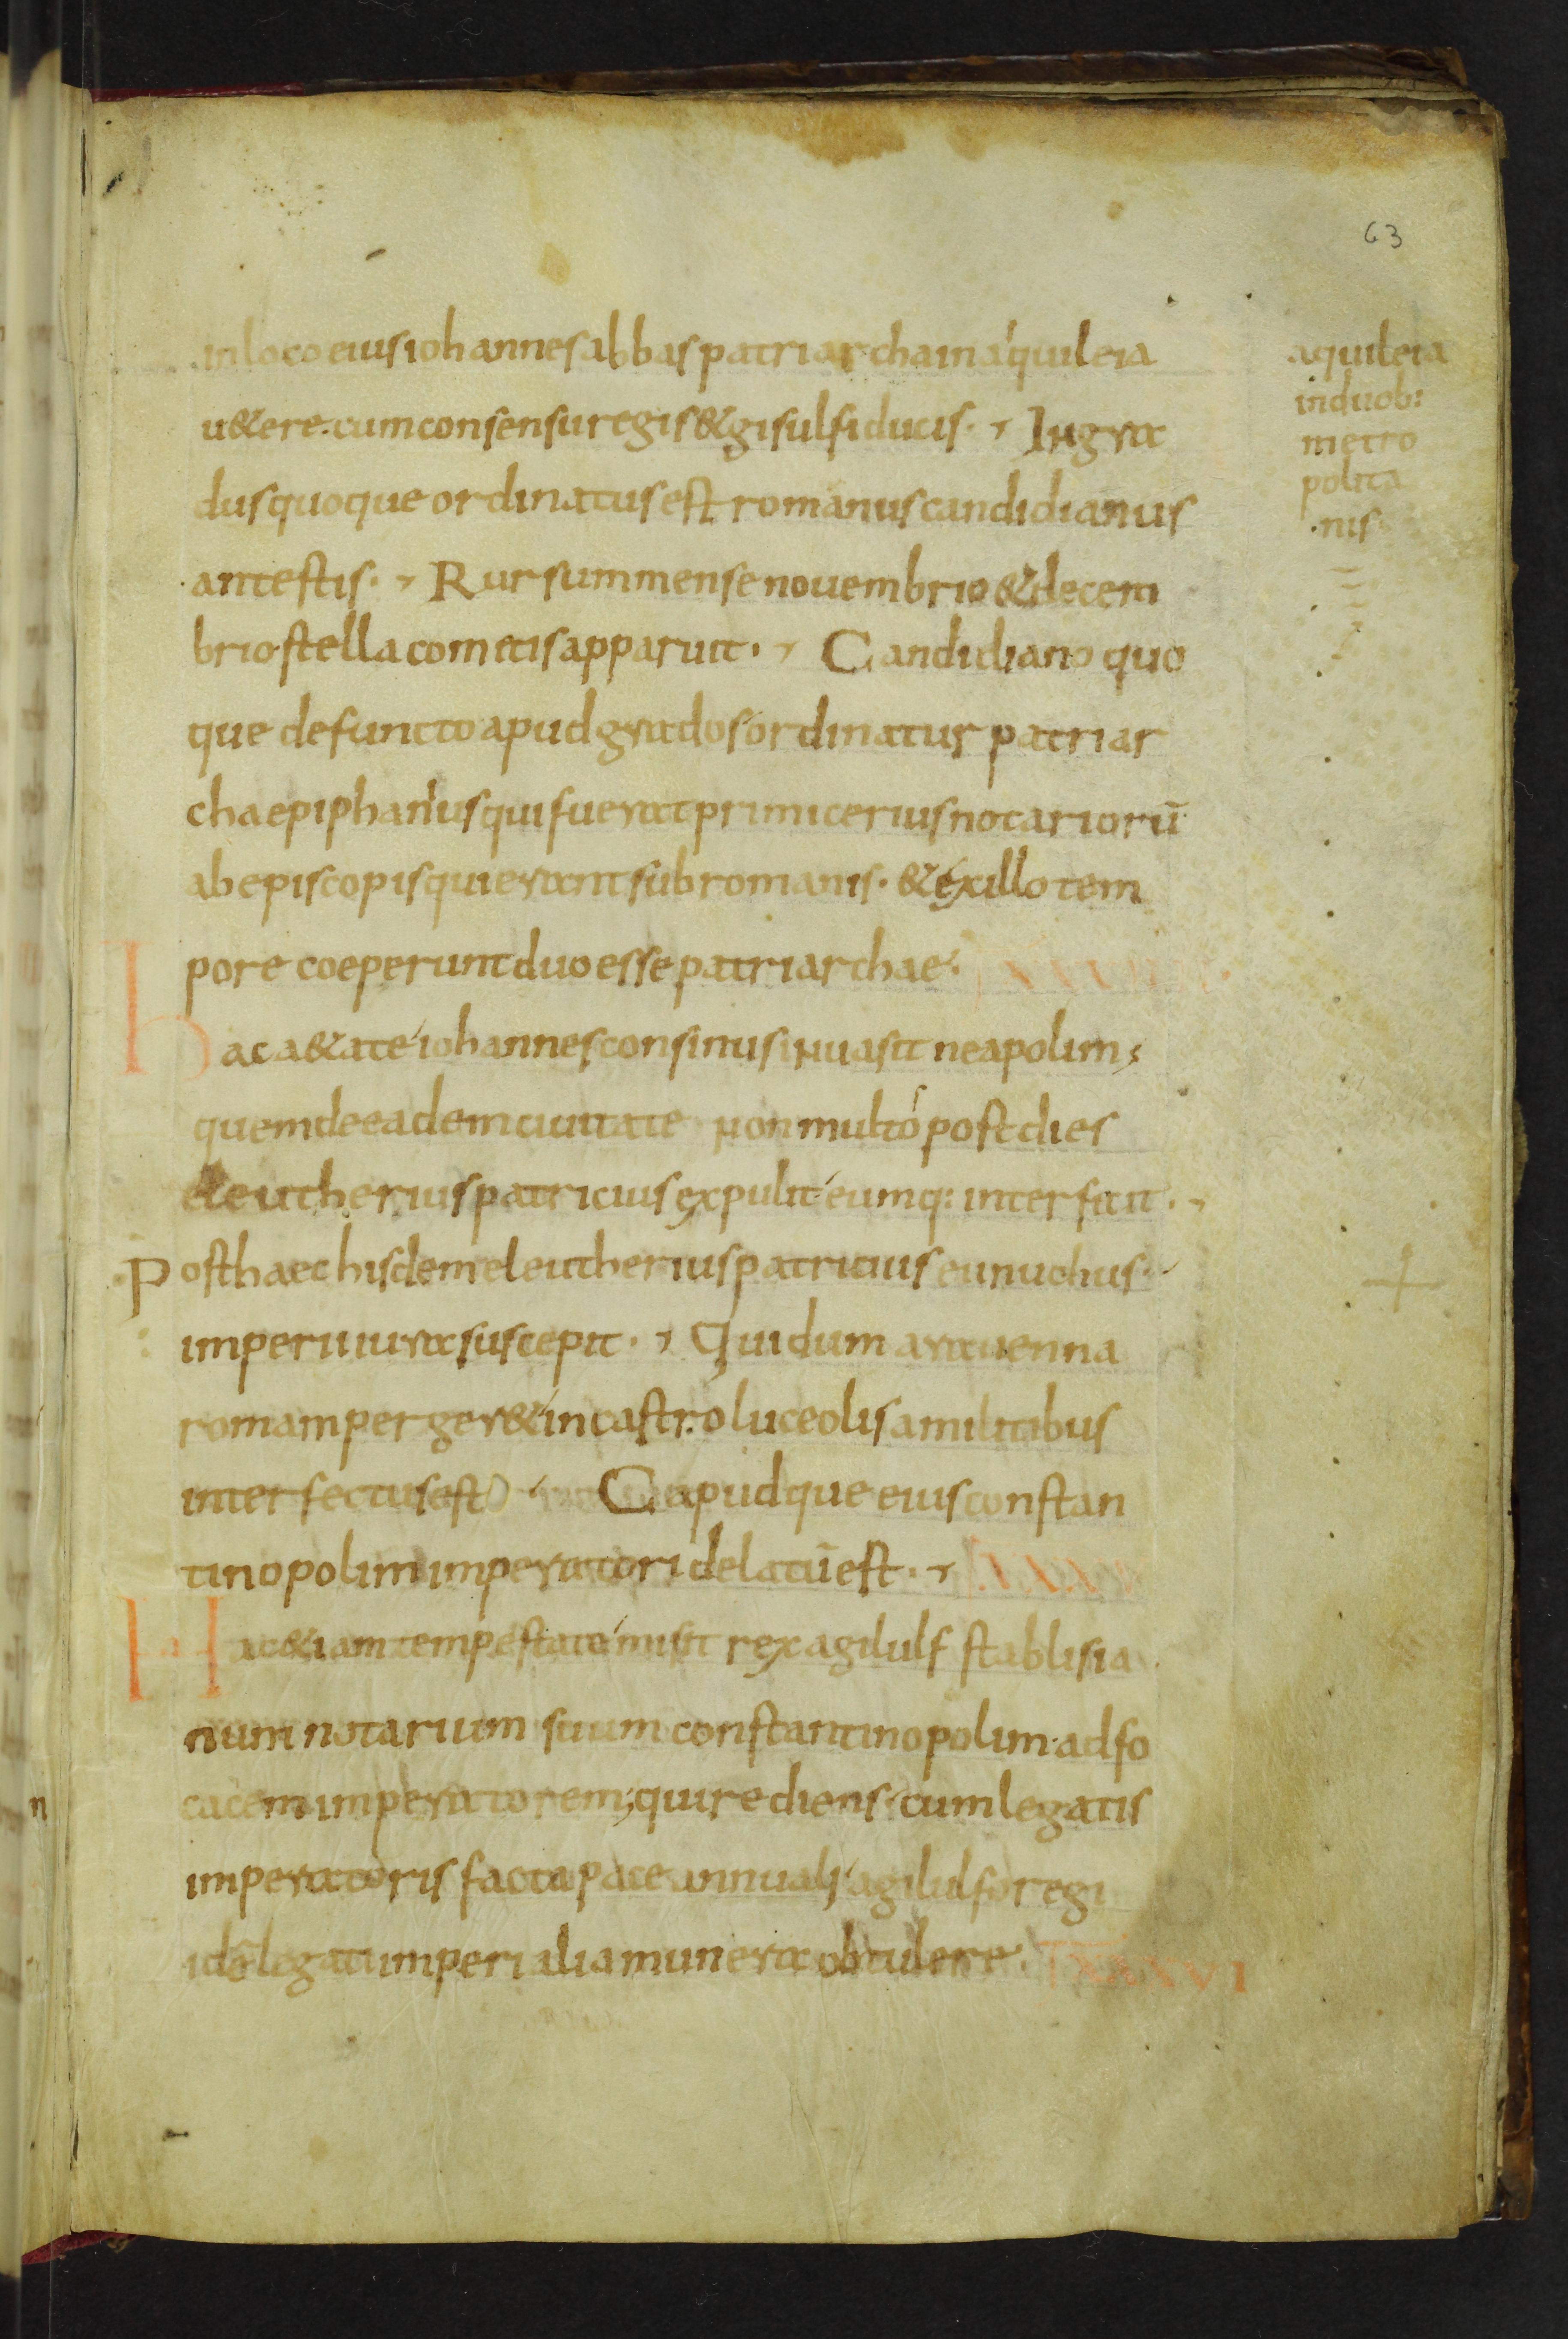 63
in loco eius iohannes abbas patriarcha in aquileia
u&ere. cum consensu regis & gisulfi ducis. In gra
dus quoque ordinatus est romanus candidianus
antestis. Rursum mense nouembrio & decem
brio stella cometis apparuit. Candidiano quo
que defuncto apud grados ordinatur patriar
cha epiphanius qui fuerat primicerius notariorū
ab episcopis qui erant sub romanis. & ex illo tem
pore coeperunt duo esse patriarchae.
Hac a&ate iohannes consinus inuasit neapolim;
quem de eadem ciuitate non multos post dies
eleutherius patricius expulit eumq: interfecit.
Post haec hisdem eleutherius patricius eunuchus
imperii iura suscepit. Qui dum a rauenna
romam perger& in castro luceolis a militibus
interfectus est. Capudque eius constan
tinopolim imperatori delatū est. XXXV
Hac &iam tempestate misit rex agilulf stablisia
num notarium suum constantinopolim. ad fo
catem imperatorem; qui rediens cum legatis
imperatoris facta pace annuali agilulfo regi
idē legati imperialia munera obtulere. XXXVI
aquileia
in duob:
metro
polita
nis